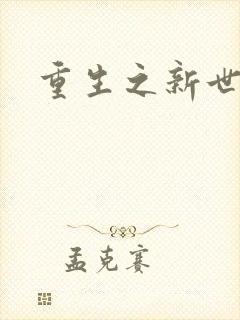 重生之新世
孟克赛